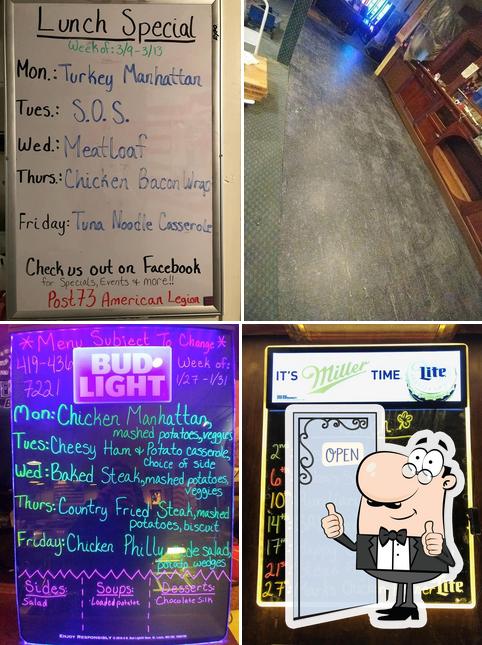 Lunch Special
Week of: 3/9 - 3/13
Mon.: Turkey Manhattan
Tues.: S.O.S.
Wed.: Meatloaf
Thurs.: Chicken Bacon Wrap
Friday: Tuna Noodle Casserole
Check us out on Facebook
for Specials, Events & more!!
Post 73 American Legion
*Menu Subject To Change*
419-436-
7221
BUD
LIGHT
Week of:
1/27 - 1/31
Mon: Chicken Manhattan,
mashed potatoes, veggies
Tues: Cheesy Ham & Potato casserole,
choice of side
Wed: Baked Steak, mashed potatoes,
veggies
Thurs: Country Fried Steak, mashed
potatoes, biscuit
Friday: Chicken Philly, side salad
potato wedges
Sides: Soups: Desserts:
Salad Loaded potato Chocolate Silk
ENJOY RESPONSIBLY
IT'S Miller TIME Lite
OPEN
6
10
14
17
21
27
Lite